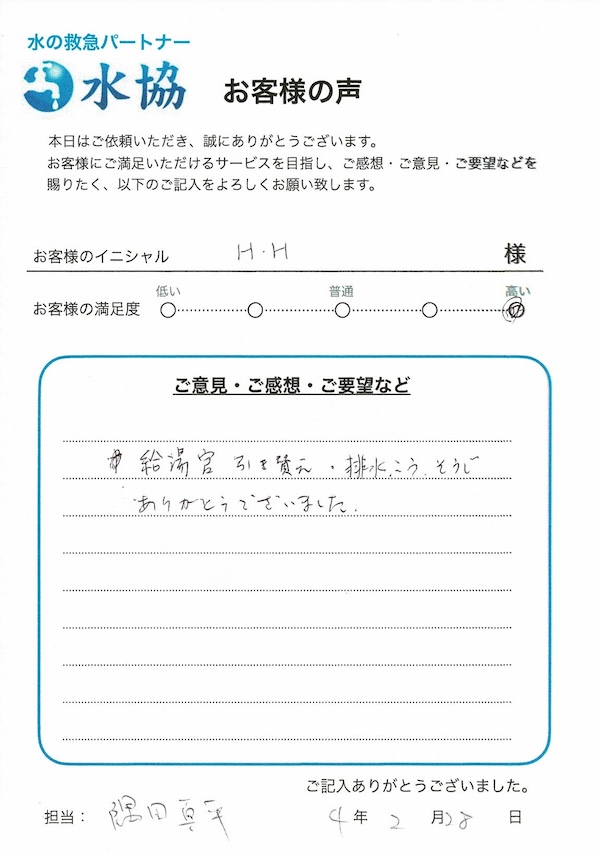 水の救急パートナー
水協 お客様の声
本日はご依頼いただき、誠にありがとうございます。
お客様にご満足いただけるサービスを目指し、ご感想・ご意見・ご要望などを
賜りたく、以下のご記入をよろしくお願い致します。
お客様のイニシャル H.H 様
低い 普通 高い
お客様の満足度
ご意見・ご感想・ご要望など
給湯官 引き替え・排水こう、そうじ
ありがとうございました。
ご記入ありがとうございました。
担当: 隅田真平 4年2月28日